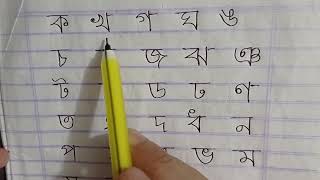 ক খ গ ঘ ঙ
চ জ ঝ ঞ
ট ড ঢ ণ
ত দ ধ ন
প ভ ম